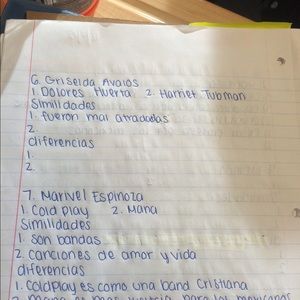 6. Griselda Avalos
1. Dolores Huerta 2. Harriet Tubman
Similidades
1. fueron mal atradadas
2.
diferencias
1.
2.
7. Marivel Espinoza
1. Cold Play 2. Mana
Similidades
1. son bandas
2. canciones de amor y vida
diferencias
1. Coldplay es como una band Cristiana
2. mana es mas para los mexicanos